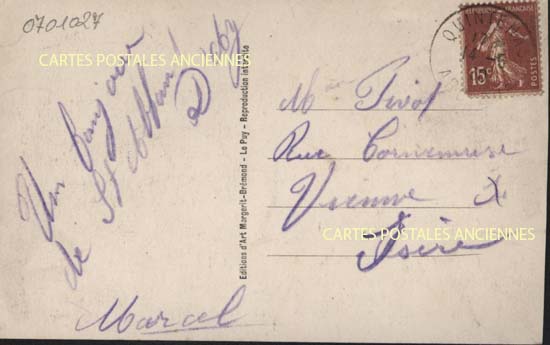 0701027
CARTES POSTALES ANCIENNES
Un bonjour
de St
Marcel
Editions d'Art Margerit-Brémond - Le Puy - Reproduction interdite
QUINT
15c
POSTES
M Pivot
Rue Cornemuse
Vienne
Isère
CARTES POSTALES ANCIENNES